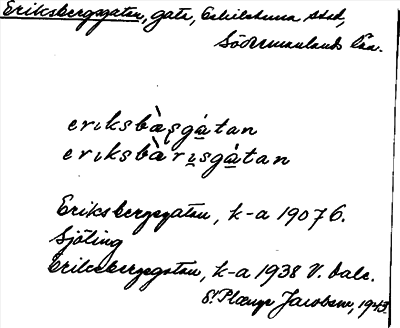 Eriksbergsgatan, gata, Eskilstuna stad,
Södermanlands län.
eriksbàs̩gátan
eriksbàrisgátan
Eriksbergsgatan, k-a 1907 G.
Sjöling
Eriksbergsgatan, k-a 1938 V. Dale.
Jacobsen, 1943.